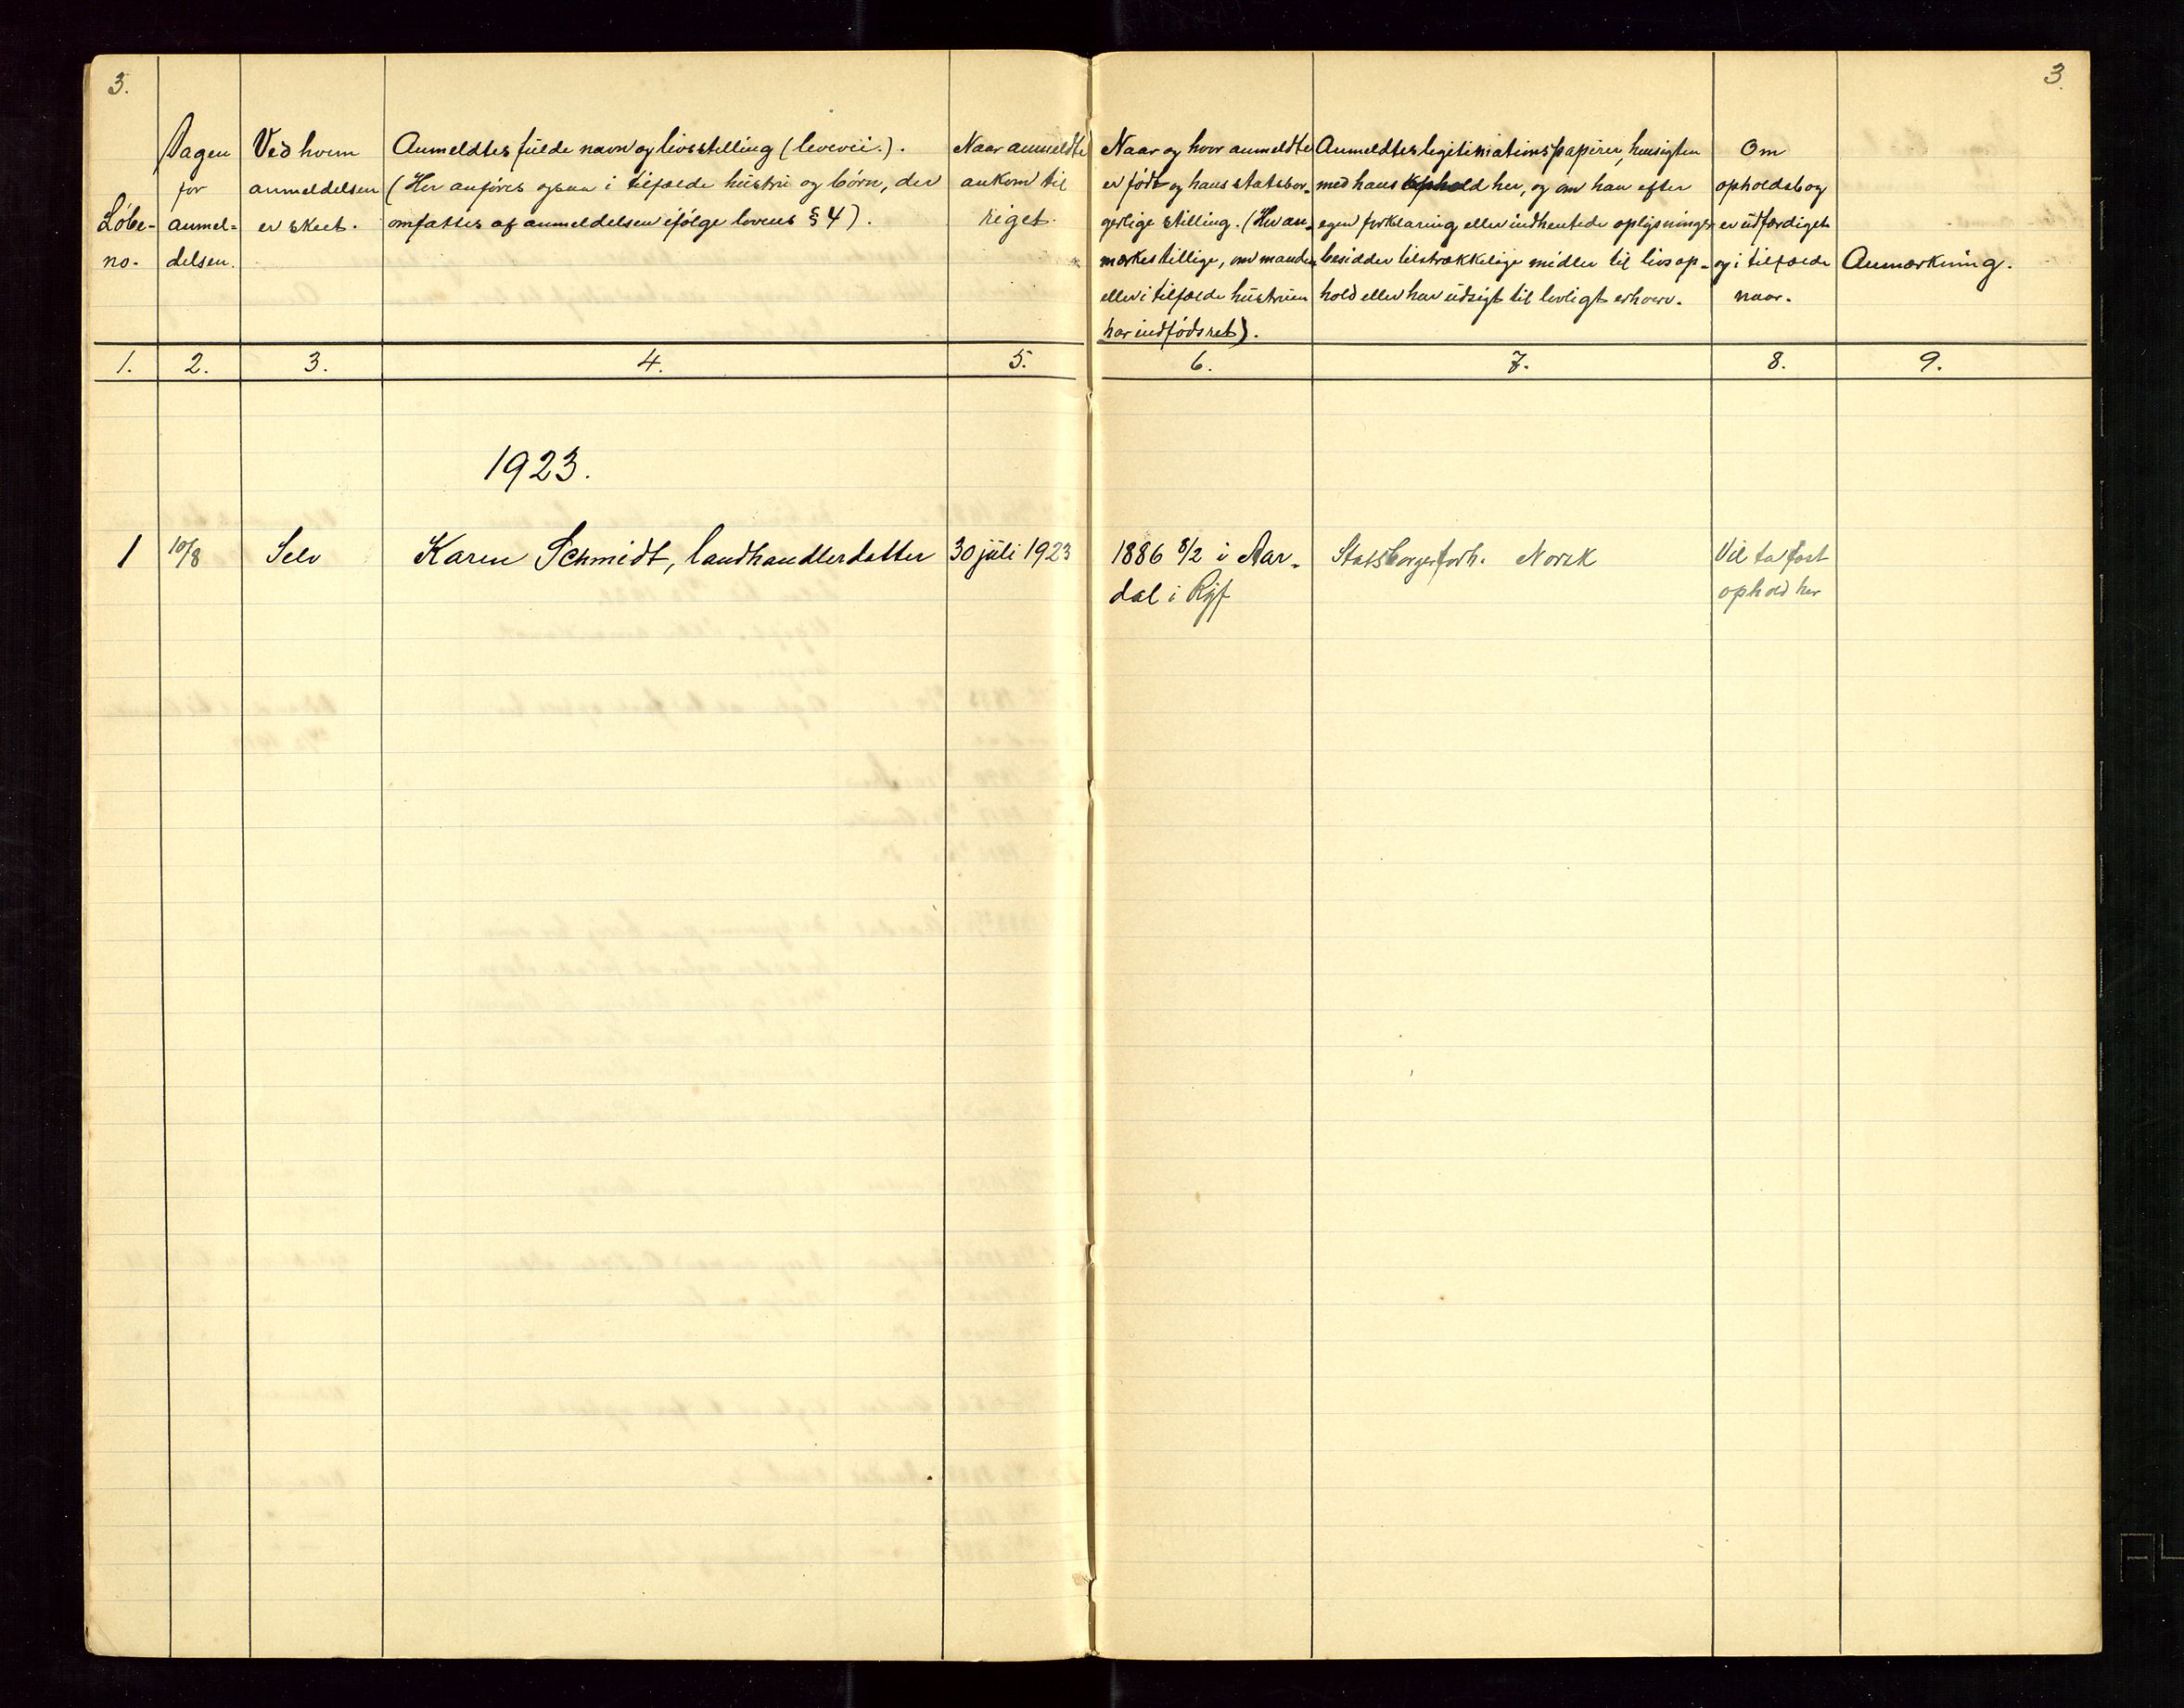 3.
Løbe-
no.
Dagen
for
anmel-
delsen.
Ved hvem
anmeldelsen
er skeet.
Anmeldtes fulde navn og livsstilling (levevei.).
(Her anføres ogsaa i tilfælde hustru og børn, der
omfattes af anmeldelsen ifølge lovens § 4).
Naar anmeldte
ankom til
riget.
Naar og hvor anmeldte
er født og hans statsbor-
gerlige stilling. (Her an-
mærkes tillige, om manden
eller i tilfælde hustruen
har indfødsret).
Anmeldtes legitimationspapirer, hensigten
med hans ophold her, og om han efter
egen forklaring eller indhentede oplysninger
besidder tilstrækkelige midler til livsop-
hold eller har udsigt til lovligt erhverv.
Om
opholdsbog
er udfærdiget
og i tilfælde
naar.
3.
Anmærkning.
1. 2. 3. 4. 5. 6. 7. 8. 9.
1923.
1 10/8 Selv Karen Schmidt, landhandlerdatter 30 juli 1923 1886 8/2 i Aar- Statsborgerforh. Norsk Vil ta fast
dal i Ryf ophold her